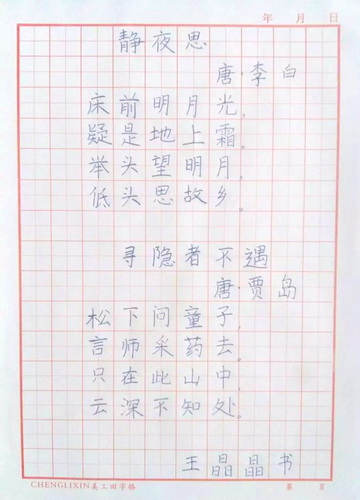 年 月 日
静夜思
唐·李白
床前明月光,
疑是地上霜。
举头望明月,
低头思故乡。
寻隐者不遇
唐·贾岛
松下问童子,
言师采药去,
只在此山中,
云深不知处。
王晶晶书
CHENGLIXIN美工田字格 第 页